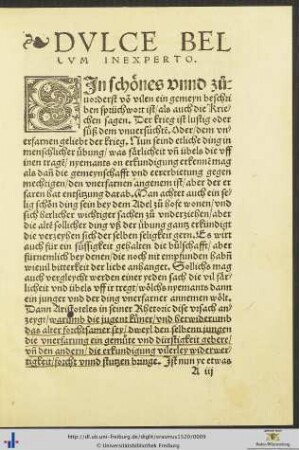 DVLCE BEL
LVM INEXPERTO.
EIn schönes vnnd zů
uorderst vō vilen ein gemeyn beschri
ben sprüchwort ist/ als auch die Krie
chen sagen. Der krieg ist lustig oder
süß dem vnuersuchtē. Oder/ dem vn
erfarnen geliebt der krieg. Nun seind etliche ding in
menschlicher übung/ was färlicheit vn̄ übels die vff
inen tragē/ nyemants on erkundigung erkennē mag
als dan̄ die gemeynschafft vnd eererbietung gegen
mechtigen/ den vnerfarnen angenem ist/ aber der er
faren hat entsitzung darab. Man achtet auch ein se
lig schön ding sein bey dem Adel zů hofe wonen/ vnd
sich herlicher wichtiger sachen zů vnderziehen/ aber
die alte söllicher ding vß der übung gantz erkündigt
die verzeyhen sich der selben seligkeit gern. Es wirt
auch für ein süssigkeit gehalten die bůlschafft/ aber
fürnemlich bey denen/ die noch nit empfunden habn̄
wieuil bitterkeit der liebe anhanget. Söllichs mag
auch vergleycht werden einer yeden sach die vil fär
licheit vnd übels vff ir tregt/ wölchs nyemants dann
ein junger vnd der ding vnerfarner annemen wölt.
Dann Aristoteles in seiner Rhetoric dise vrsach an
zeygt/ warumb die jugent küner/ vnd herwiderumb
das alter forchtsamer sey/ dweyl den selben jungen
die vnerfarung ein gemüte vnd dürstigkeit gebere/
vn̄ den andern/ die erkundigung vilerley widerwer
tigkeit/ forcht vnnd stutzen bringe. Ist nun ye etwas
A iij
http://dl.ub.uni-freiburg.de/diglit/erasmus1520/0009
© Universitätsbibliothek Freiburg